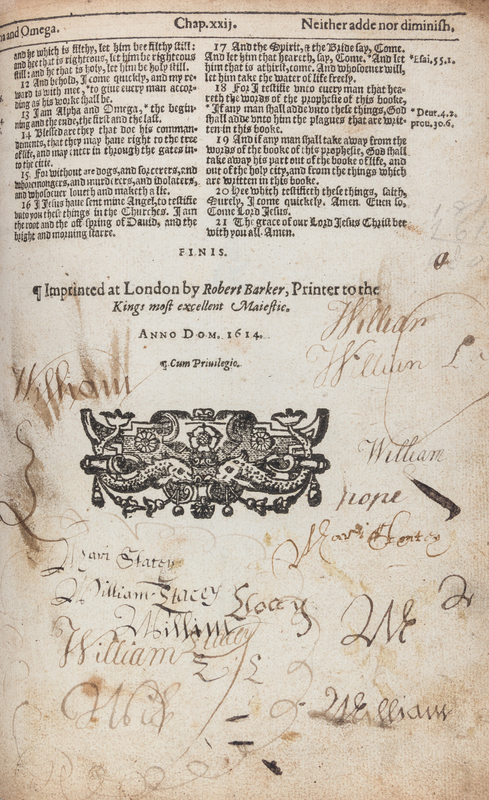 and Omega.
Chap.xxij.
Neither adde nor diminish.
and he which is filthy, let him bee filthy still:
and hee that is righteous, let him be righteous
still: and he that is holy, let him be holy still.
12 And behold, I come quickly, and my re-
ward is with mee, * to giue euery man accor-
ding as his worke shall be.
13 I am Alpha and Omega, * the begin-
ning and the ende, the first and the last.
14 Blessed are they that doe his comman-
dements, that they may haue right to the tree
of life, and may enter in through the gates in-
to the citie.
15. For without are dogs, and sorcerers, and
whoremongers, and murderers, and idolaters,
and whosoeuer loueth and maketh a lie.
16 I Iesus haue sent mine Angel, to testifie
vnto you these things in the Churches. I am
the root and the off spring of Dauid, and the
bright and morning starre.
17 And the Spirit, & the Bride say, Come.
And let him that heareth, say, Come. * And let
him that is athirst, come. And whosoeuer will,
let him take the water of life freely.
18 For I testifie vnto euery man that hea-
reth the words of the prophesie of this booke,
* If any man shall adde vnto these things, God
shall adde vnto him the plagues that are writ-
ten in this booke.
19 And if any man shall take away from the
words of the booke of this prophesie, God shall
take away his part out of the booke of life, and
out of the holy city, and from the things which
are written in this booke.
20 Hee which testifieth these things, saith,
Surely, I come quickly. Amen. Euen so,
Come Lord Iesus.
21 The grace of our Lord Iesus Christ bee
with you all. Amen.
*Esai.55.1.
*Deut.4.2.
prou.30.6.
FINIS.
¶ Imprinted at London by Robert Barker, Printer to the
Kings most excellent Maiestie.
ANNO DOM. 1614.
¶ Cum Priuilegio.
William
William
William
William
pope
Mari Statey
William Stacey Stacey
William
William Stacey
Will
William